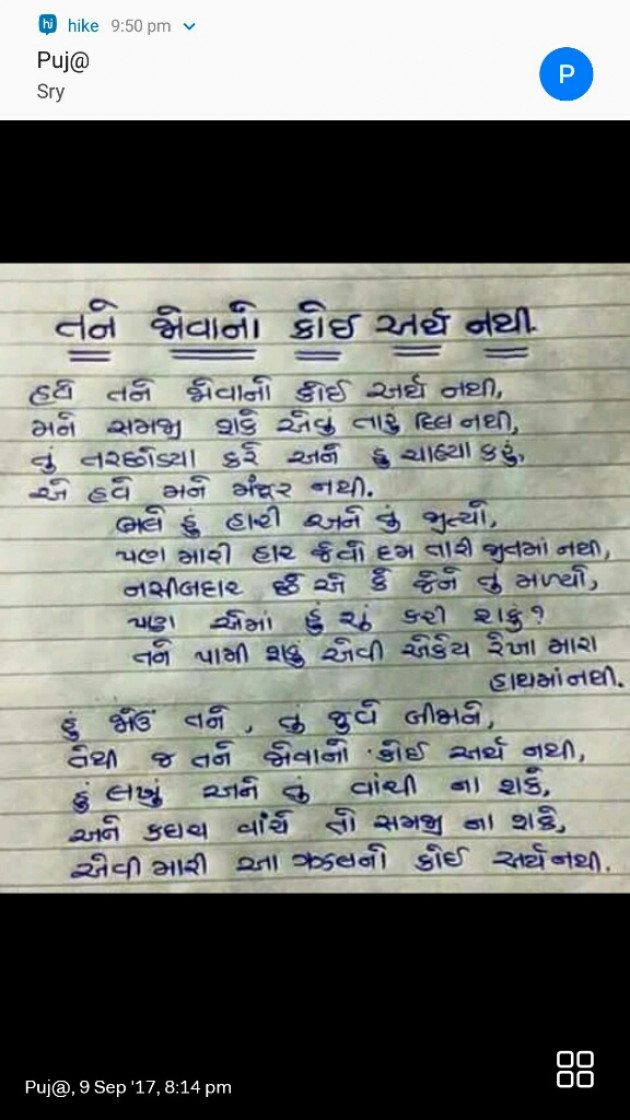 hike 9:50 pm
Puj@
Sry
P
તને જોવાનો કોઈ અર્થ નથી
હવે તને જોવાનો કોઈ અર્થ નથી,
મને સમજી શકે એવું તારું દિલ નથી,
તું તરછોડ્યા કરે અને હું ચાહ્યા કરું,
એ હવે મને મંજૂર નથી.
ભલે હું હારી અને તું જીત્યો,
પણ મારી હાર જેવો દમ તારી જીતમાં નથી,
નસીબદાર છે એ કે જેને તું મળ્યો,
પણ એમાં હું શું કરી શકું?
તને પામી શકું એવી એકેય રેખા મારા
હાથમાં નથી.
હું જોઉં તને, તું જુવે બીજાને,
તેથી જ તને જોવાનો કોઈ અર્થ નથી,
હું લખું અને તું વાંચી ના શકે,
અને કદાચ વાંચે તો સમજી ના શકે,
એવી મારી આ ગઝલનો કોઈ અર્થ નથી.
Puj@, 9 Sep '17, 8:14 pm